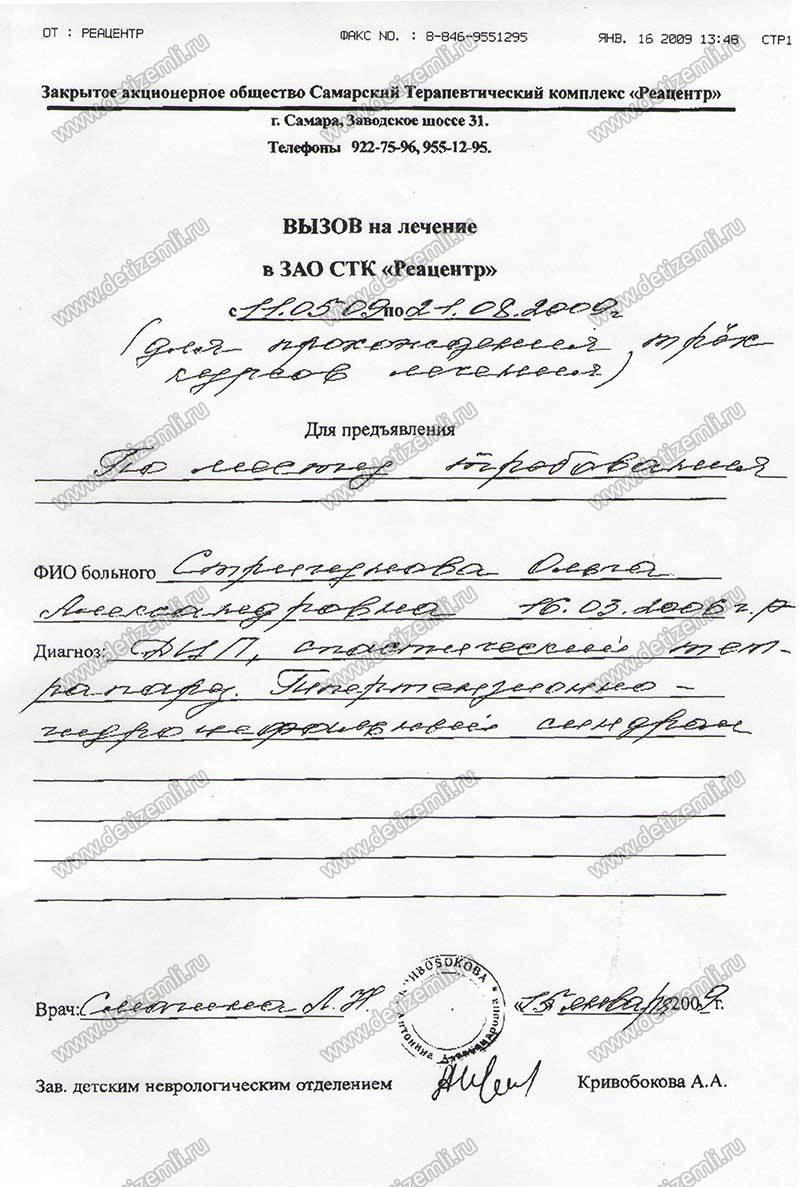 ОТ : РЕАЦЕНТР ФАКС NO. : 8-846-9551295 ЯНВ. 16 2009 13:48 СТР1
Закрытое акционерное общество Самарский Терапевтический комплекс «Реацентр»
г. Самара, Заводское шоссе 31.
Телефоны 922-75-96, 955-12-95.
ВЫЗОВ на лечение
в ЗАО СТК «Реацентр»
с 11.05.09 по 21.08.2009г
(для прохождения трёх
курсов лечения)
Для предъявления
По месту требования
ФИО больного Ольга
Александровна 16.03.2006 г.р
Диагноз: ДЦП, спастический тет-
рапарез. Гипертензионно-
гидроцефальный синдром
Врач: Л.Н. КРИВОБОКОВА Антонина Александровна «15» января 2009 г.
Зав. детским неврологическим отделением Кривобокова А.А.
www.detizemli.ru